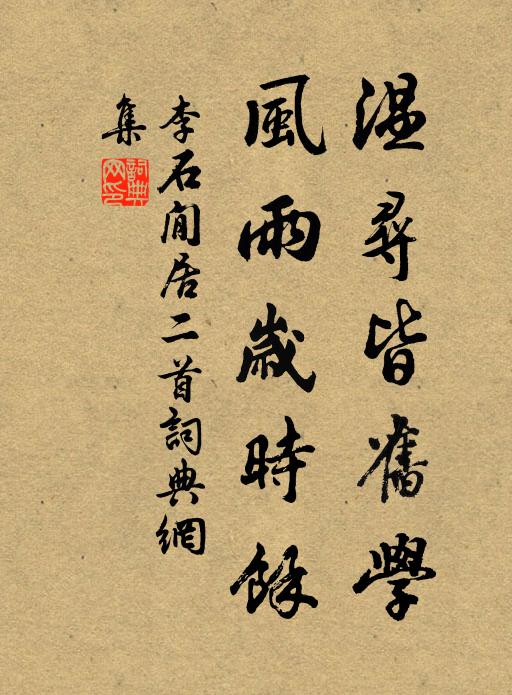 温尋皆舊學
風雨歲時餘
李石閒居二首詞典網
集
詞典网印